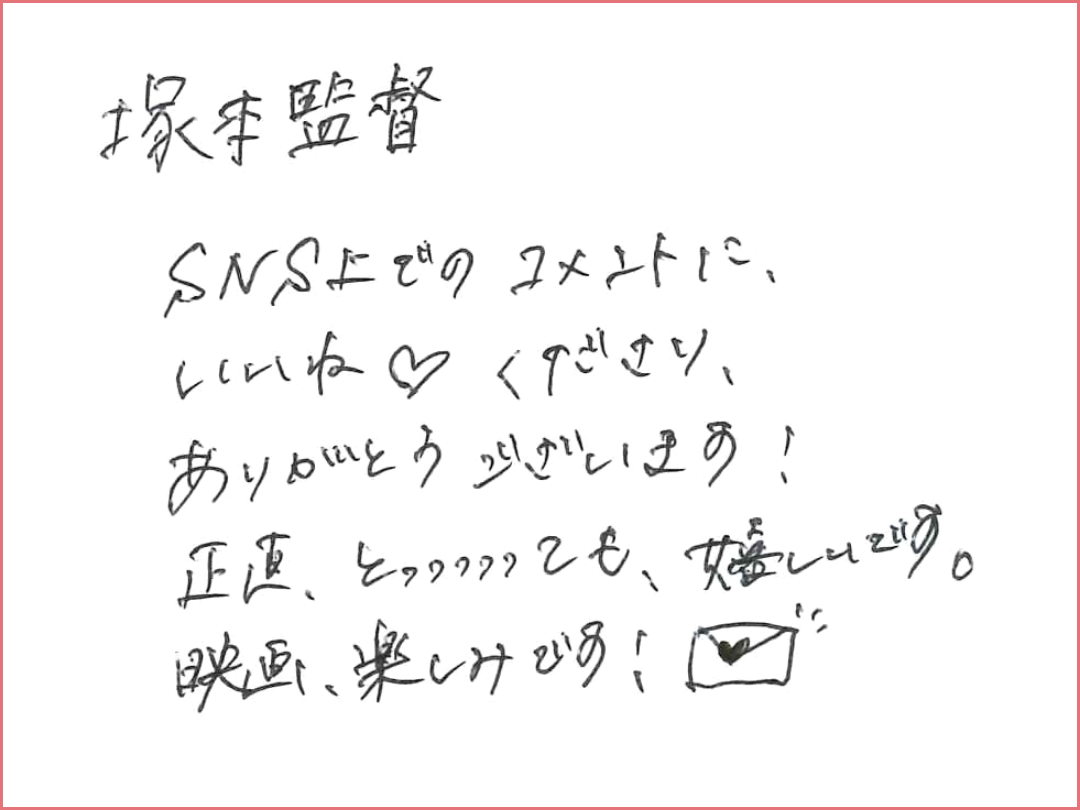 塚本監督
SNS上でのコメントに、
いいね♡くださり、
ありがとうございます!
正直、とッッッッッても、嬉しいです。
映画、楽しみです!